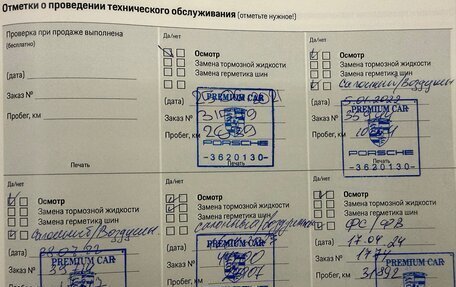 Отметки о проведении технического обслуживания (отметьте нужное!)
Проверка при продаже выполнена
(бесплатно)
(дата)
Заказ №
Пробег, км
Печать
Да/нет
Осмотр
Замена тормозной жидкости
Замена герметика шин
(дата)
Заказ №
Пробег, км
PREMIUM CAR
PORSCHE
-3620130-
Печать
Да/нет
Осмотр
Замена тормозной жидкости
Замена герметика шин
Салонный/Воздушн
(дата) 5.01.2022
Заказ №
Пробег, км
PREMIUM CAR
PORSCHE
-3620130-
Печать
Да/нет
Осмотр
Замена тормозной жидкости
Замена герметика шин
Салонный/Воздушн.
(дата)
Заказ №
PREMIUM CAR
Да/нет
Осмотр
Замена тормозной жидкости
Замена герметика шин
(дата)
Заказ №
Пробег, км
PREMIUM CAR
Да/нет
Осмотр
Замена тормозной жидкости
Замена герметика шин
ФС/ФВ
(дата) 17.04.24
Заказ №
Пробег, км 31892
PREMIUM CAR